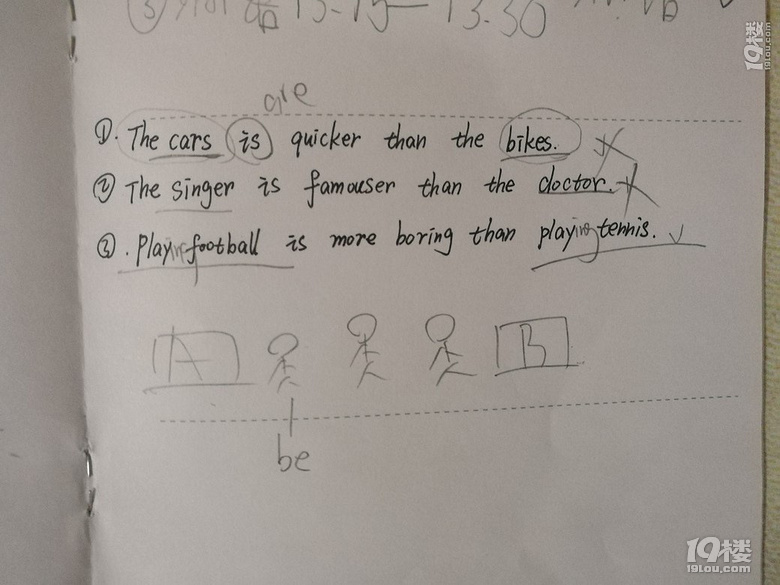 are
①. The cars is quicker than the bikes.
② The singer is famouser than the doctor.
③. Playing football is more boring than playing tennis. √
A B
be
19楼
19lou.com